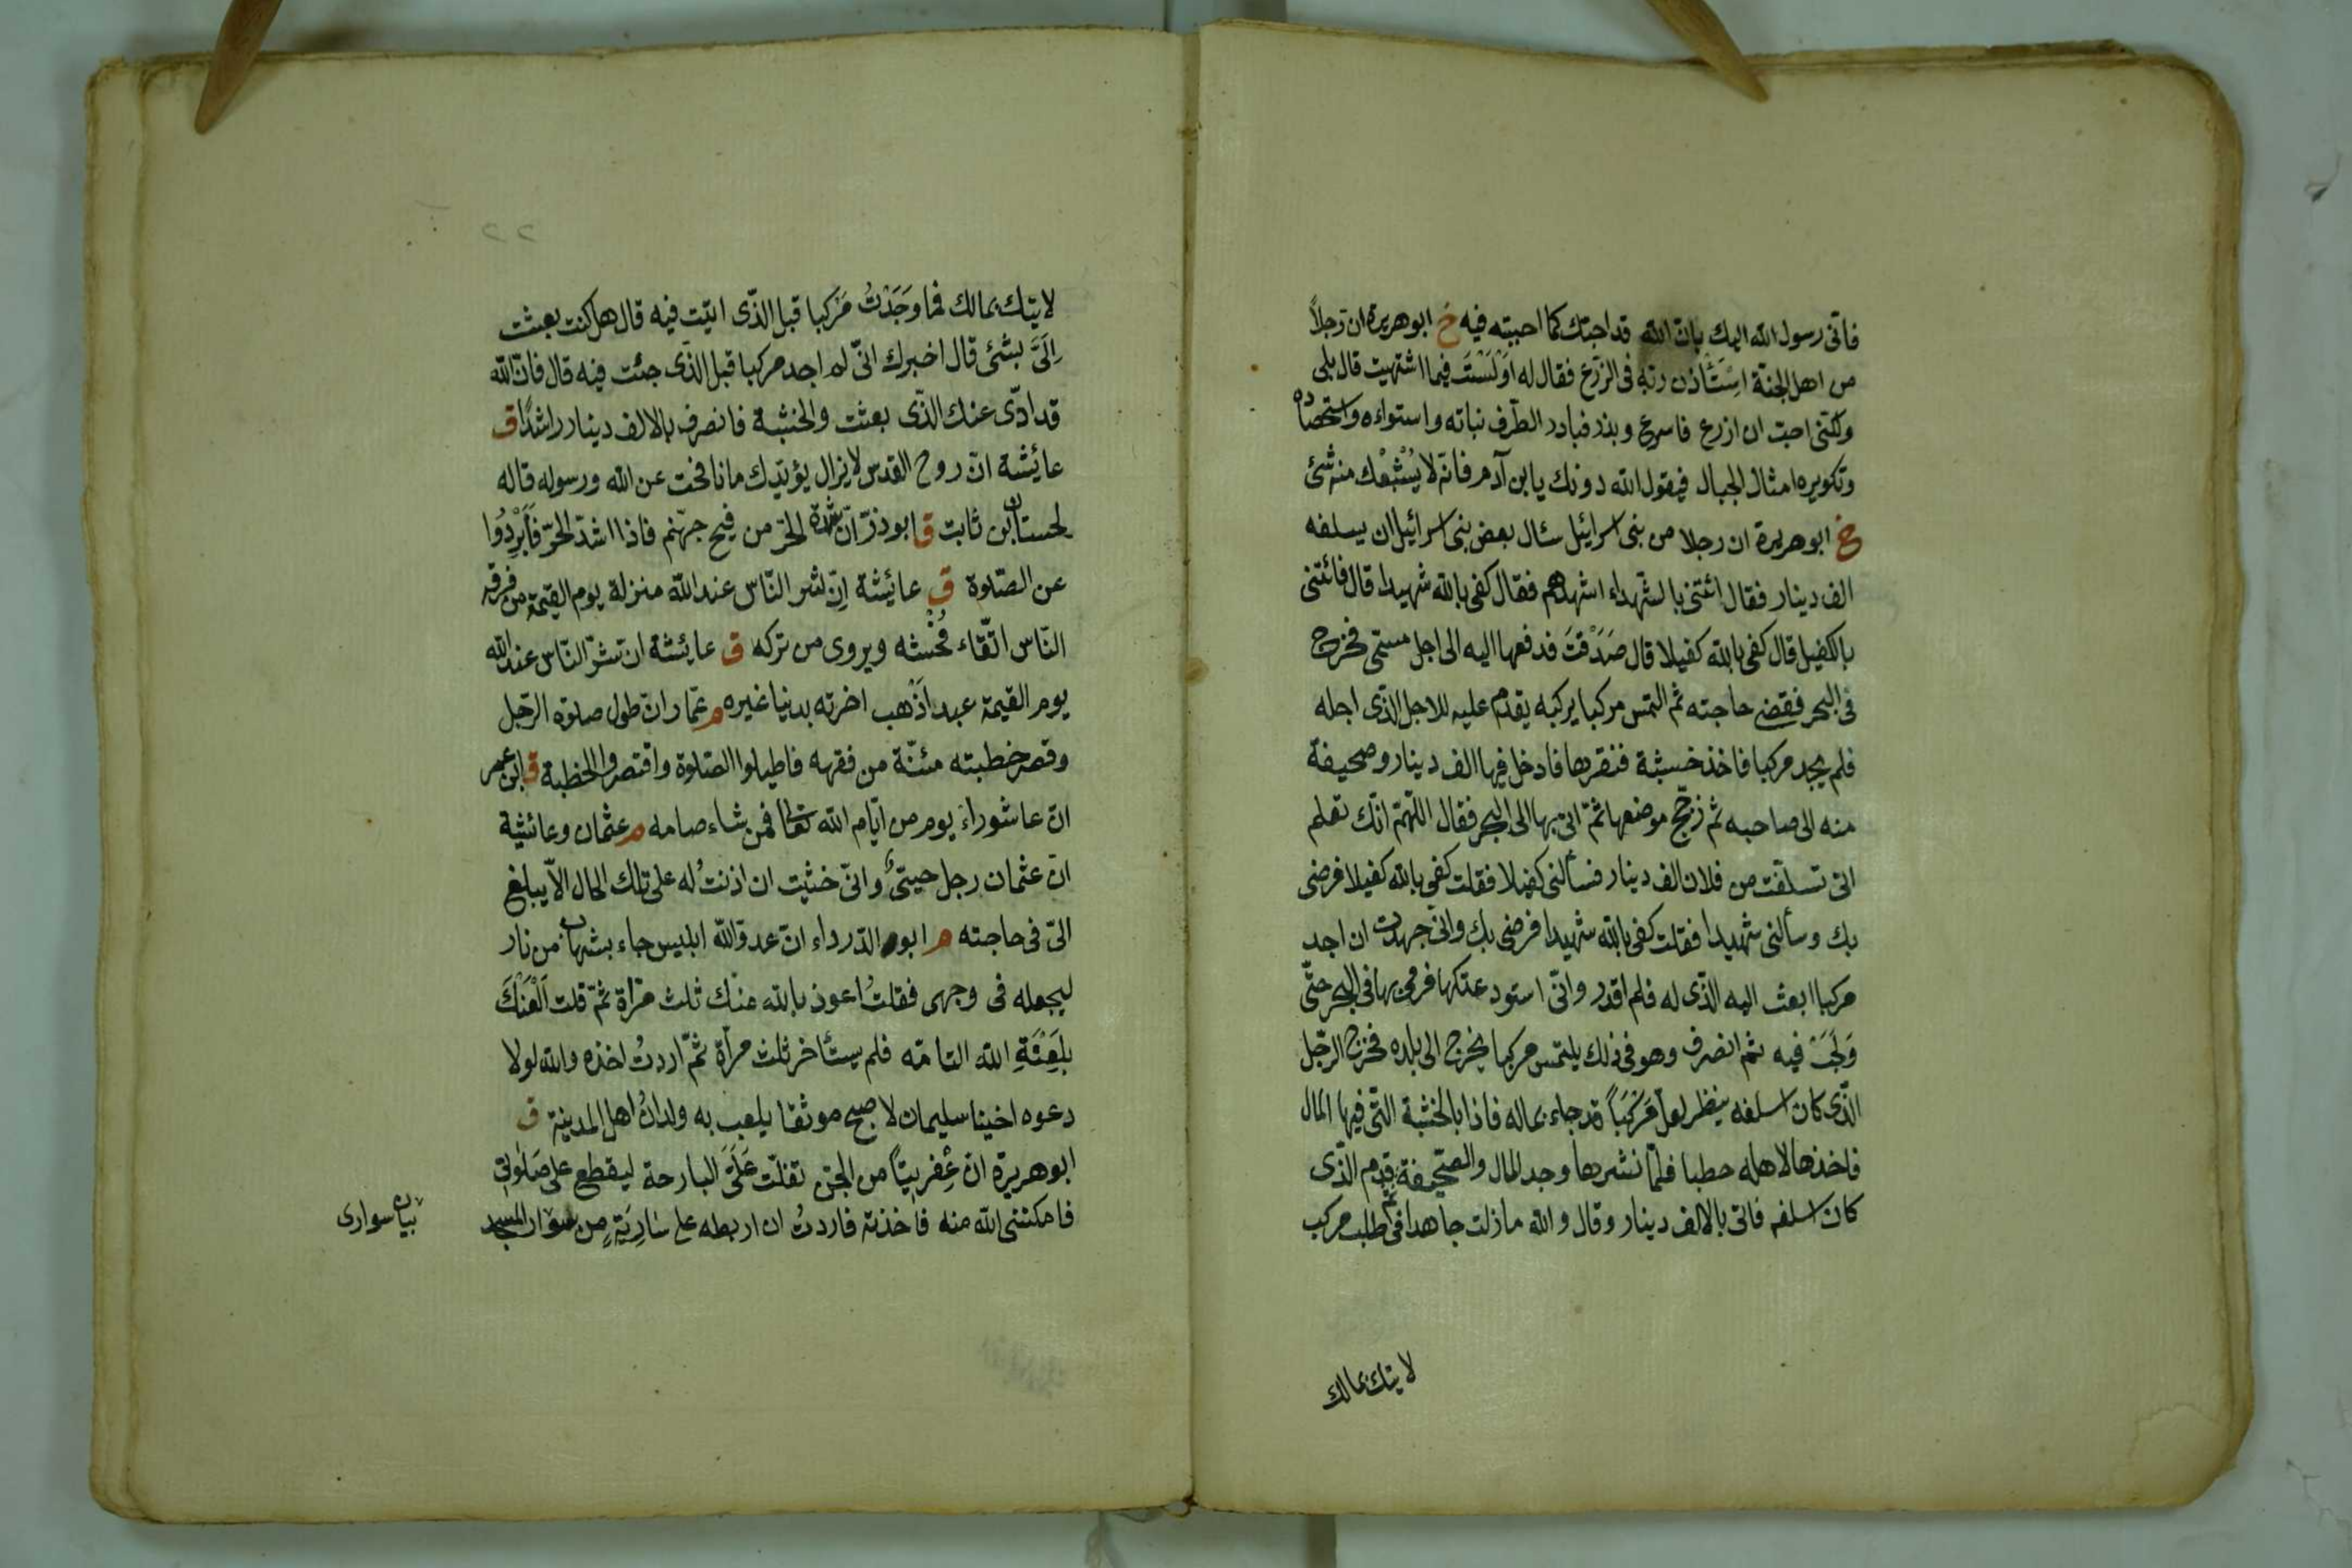 فانى رسول الله اليك بان الله قد احبتك كما احببته فيه خ ابو هريرة ان رجلاً
من اهل الجنة اِسْتَأذن ربّه فى الزرع فقال له اَوَلَسْتَ فيما اشتهيت قال بلى
ولكننى احبّ ان ازرع فاسرع وبذر فبادر الطرف نباته واستواءه واستحصاده
وتكويره امثال الجبال فيقول الله دونك يا بن آدم فانّه لا يُشْبِعُك منه شئ
خ ابو هريرة ان رجلا من بنى اسرائيل سئال بعض بنى اسرائيل ان يسلفه
الف دينار فقال ائتنى بالشّهداء اشهدهم فقال كفى بالله شهيدا قال فائتنى
بالكفيل قال كفى بالله كفيلا قال صَدَقتَ فدفعها اليه الى اجل مسمّى فخرج
فى البحر فقضى حاجته ثم التمس مركبا يركبه يقدم عليه للاجل الذّى اجله
فلم يجد مركبا فاخذ خشبة فنقرها فادخل فيها الف دينار وصحيفة
منه الى صاحبه ثم زجّج موضعها ثمّ اتى بها الى البحر فقال اللّهمّ انّك تعلم
انى تسلّفت من فلان الف دينار فسألنى كفيلا فقلت كفى بالله كفيلا فرضى
بك وسألنى شهيدا فقلت كفى بالله شهيدا فرضى بك وانّى جهدت ان اجد
مركبا ابعث اليه الذّى له فلم اقدر وانّى استودعتكها فرمى بها فى البحر حتّى
وَلَجَتْ فيه ثم انصرف وهو فى ذلك يلتمس مركبا يخرج الى بلده فخرج الرّجل
الذّى كان اسلفه ينظر لعلّ مَرْكَبَاً قد جاء بماله فاذا بالخشبة التّى فيها المال
فاخذها لاهله حطبا فلمّا نشرها وجد المال والصّحيفة ثم قدم الذّى
كان اسلفه فاتى بالالف دينار وقال والله ما زلت جاهدا فى طلب مركب
لاتيتك بمالك
٢٢
لاتيتك بمالك فما وَجَدْتُ مَرْكبا قبل الذّى اتيت فيه قال هل كنت بعثت
اِلَىَّ بشئ قال اخبرك انّى لم اجد مركبا قبل الذّى جئت فيه قال فانّ الله
قد ادّى عنك الذّى بعثت والخشبة فانصرف بالالف دينار راشدًا ق
عائيشة انّ روح القدس لا يزال يؤيّدك ما نافحت عن الله ورسوله قاله
لحسان بن ثابت ق ابو ذرّ انّ شدّة الحرّ من فيح جهنّم فاذا اشدّ الحرّ فَاَبْرِدُوا
عن الصّلوة ق عائيشة اِنّ لشر النّاس عند الله منزلة يوم القيمة من فرقه
النّاس اتّقاء فُحْشه ويروى من تركه ق عائيشة ان شرّ النّاس عند الله
يوم القيمة عبد اَذْهب اخرته بدنيا غيره م عمّار انّ طول صلوة الرّجل
وقصر خطبته مئنّة من فقهه فاطيلوا الصّلوة واقتصروا الخطبة ق ابن عمر
انّ عاشوراءَ يوم من ايّام الله تعالى فمن شاء صامه م عثمان وعائيشة
انّ عثمان رجل حيىّ وانّى خشيت ان اذنتُ له على تلك الحال الاّ يبلغ
الىّ فى حاجته م ابو الدّرداء انّ عدوّ الله ابليس جاء بشهاب من نار
ليجعله فى وجهى فقلتُ اعوذ بالله منك ثلث مرّاة ثمّ قلت اَلْعَنُكَ
بلَعْنَةِ الله التامّه فلم يستأخر ثلث مرّاة ثمّ اردتُ اخذه والله لولا
دعوه اخينا سليمان لاصبح موثقا يلعب به ولدانُ اهل المدينة ق
ابو هريرة انّ عِفْريتاً من الجنّ تفلّت عَلَىَّ البارحة ليقطع على صَلوتى
فامكننى الله منه فاخذته فاردتُ ان اربطه على سَارِيَةٍ من سوار المسجد
بيان سوارى